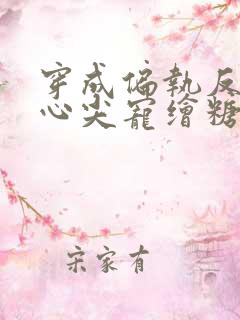 穿成偏執反
心尖寵繪糖
宋家有